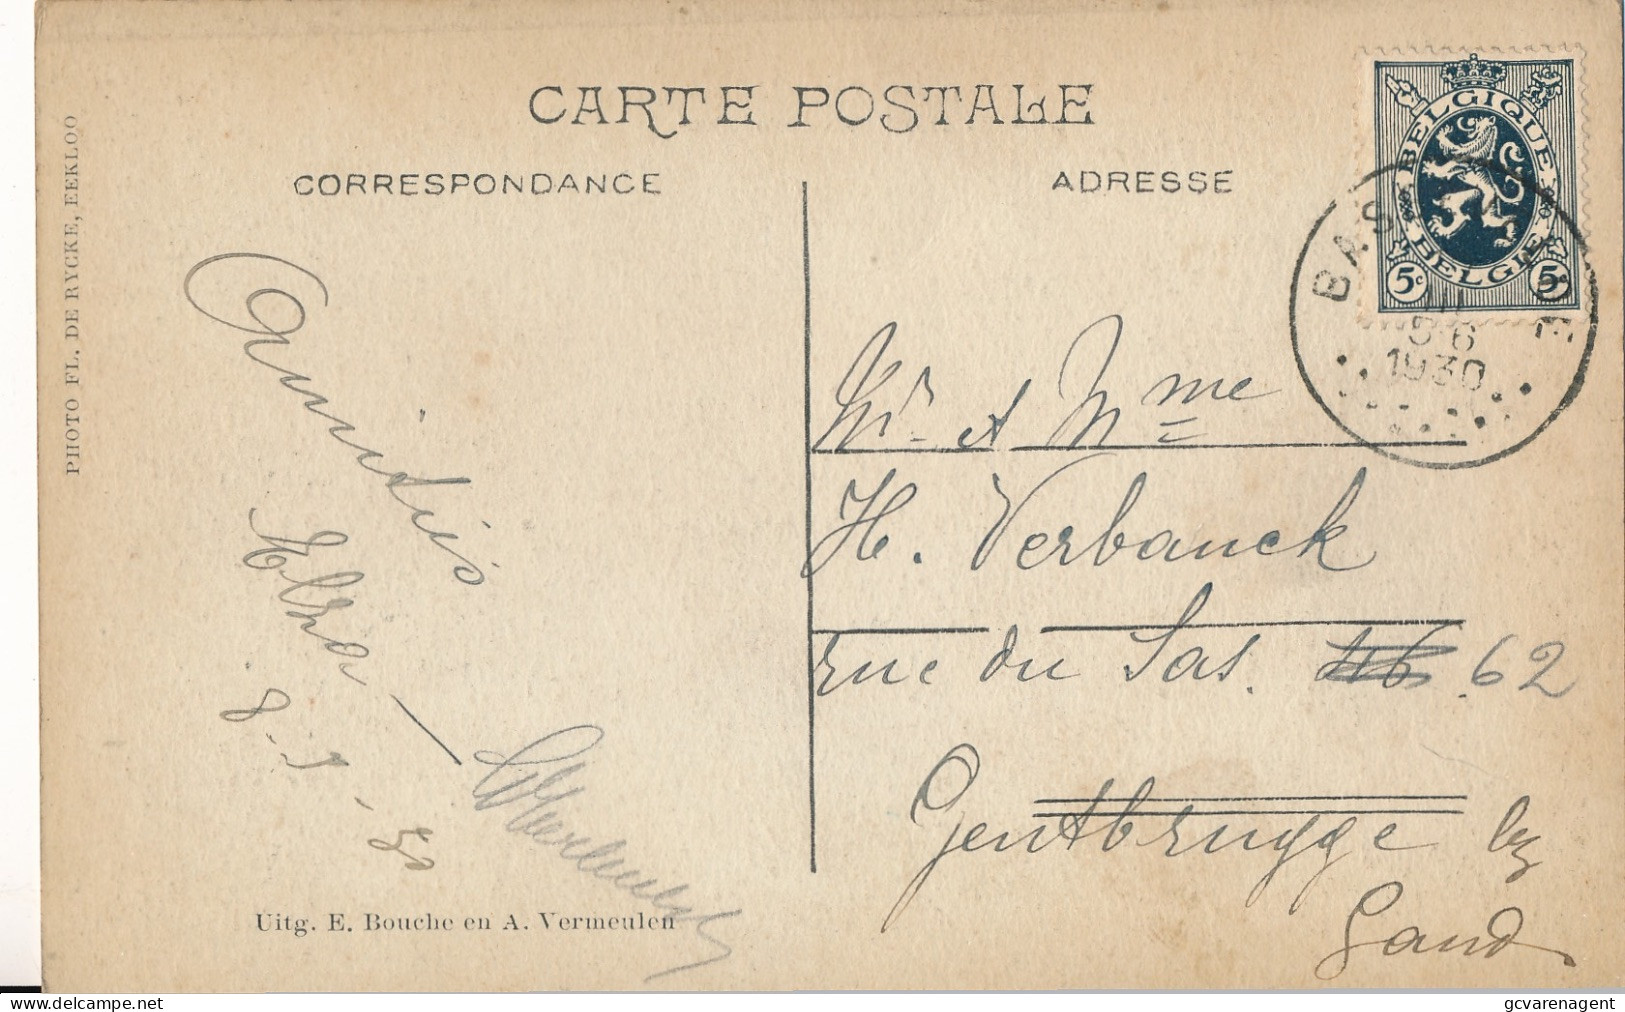 CARTE POSTALE
CORRESPONDANCE
ADRESSE
PHOTO FL. DE RYCKE, EEKLOO
BELGIQUE
BELGIË
5c 5c
BAS
DE
1930
Amitiés
8-
Mr et Mme
H. Verbauck
rue du Sas. 46 . 62
Gentbrugge by
Gand
Uitg. E. Bouche en A. Vermeulen
delcampe.net
gcvarenagent